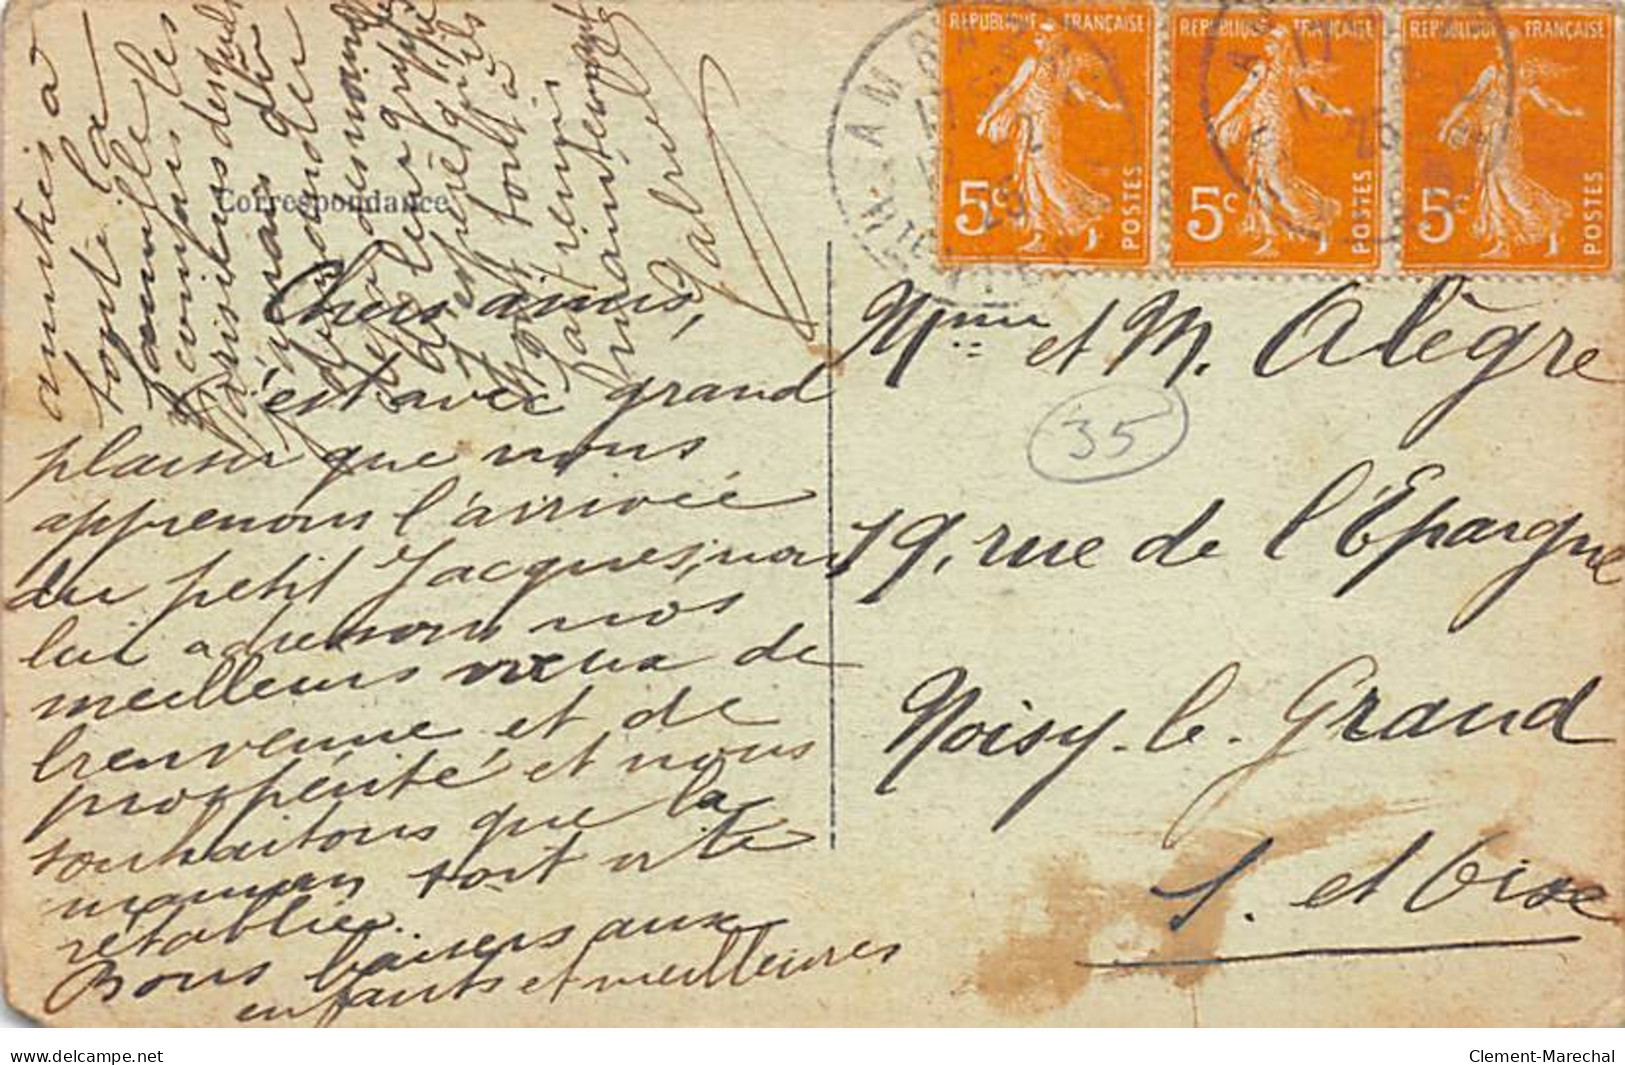 REPUBLIQUE FRANÇAISE
5c
POSTES
REPUBLIQUE FRANÇAISE
5c
POSTES
REPUBLIQUE FRANÇAISE
5c
POSTES
Correspondance
Chers amis,
C'est avec grand
plaisir que nous
apprenons l'arrivée
du petit Jacques, nous
lui adressons nos
meilleurs vœux de
bienvenue et de
prospérité et nous
souhaitons que la
maman soit vite
rétablie.
Bons baisers aux
enfants et meilleures
amitiés à
toute la
famille
compris les
Parisiens
tout à
fait remis
maintenant
Gabriel
Mme et M. Alègre
35
19, rue de l'Epargne
Noisy-le-Grand
S. et Oise
delcampe.net
Clement-Marechal